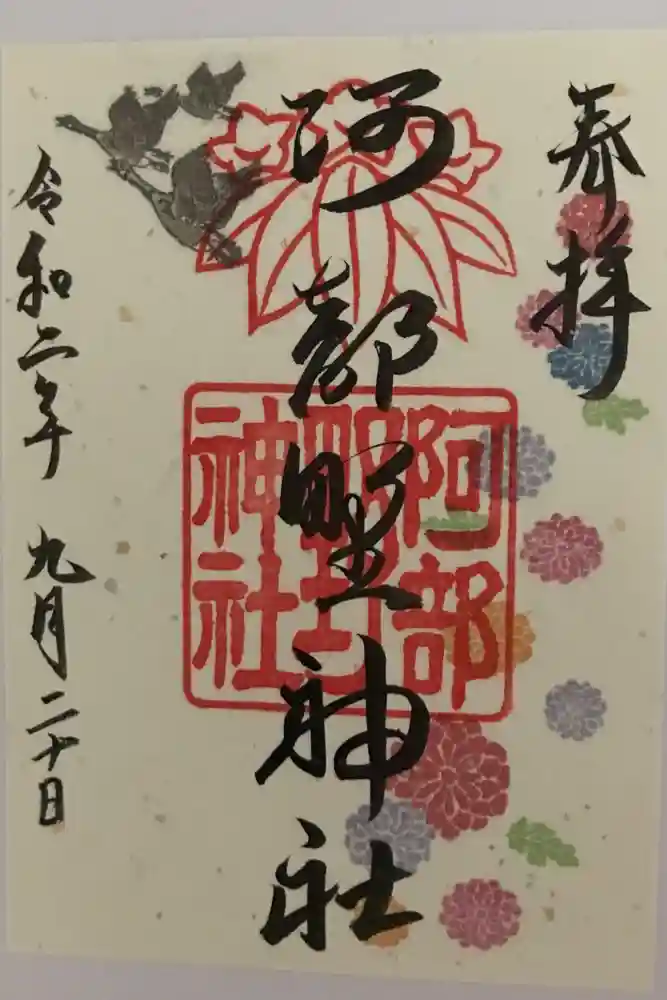 奉拝
阿部野神社
阿部野神社
令和二年 九月二十日